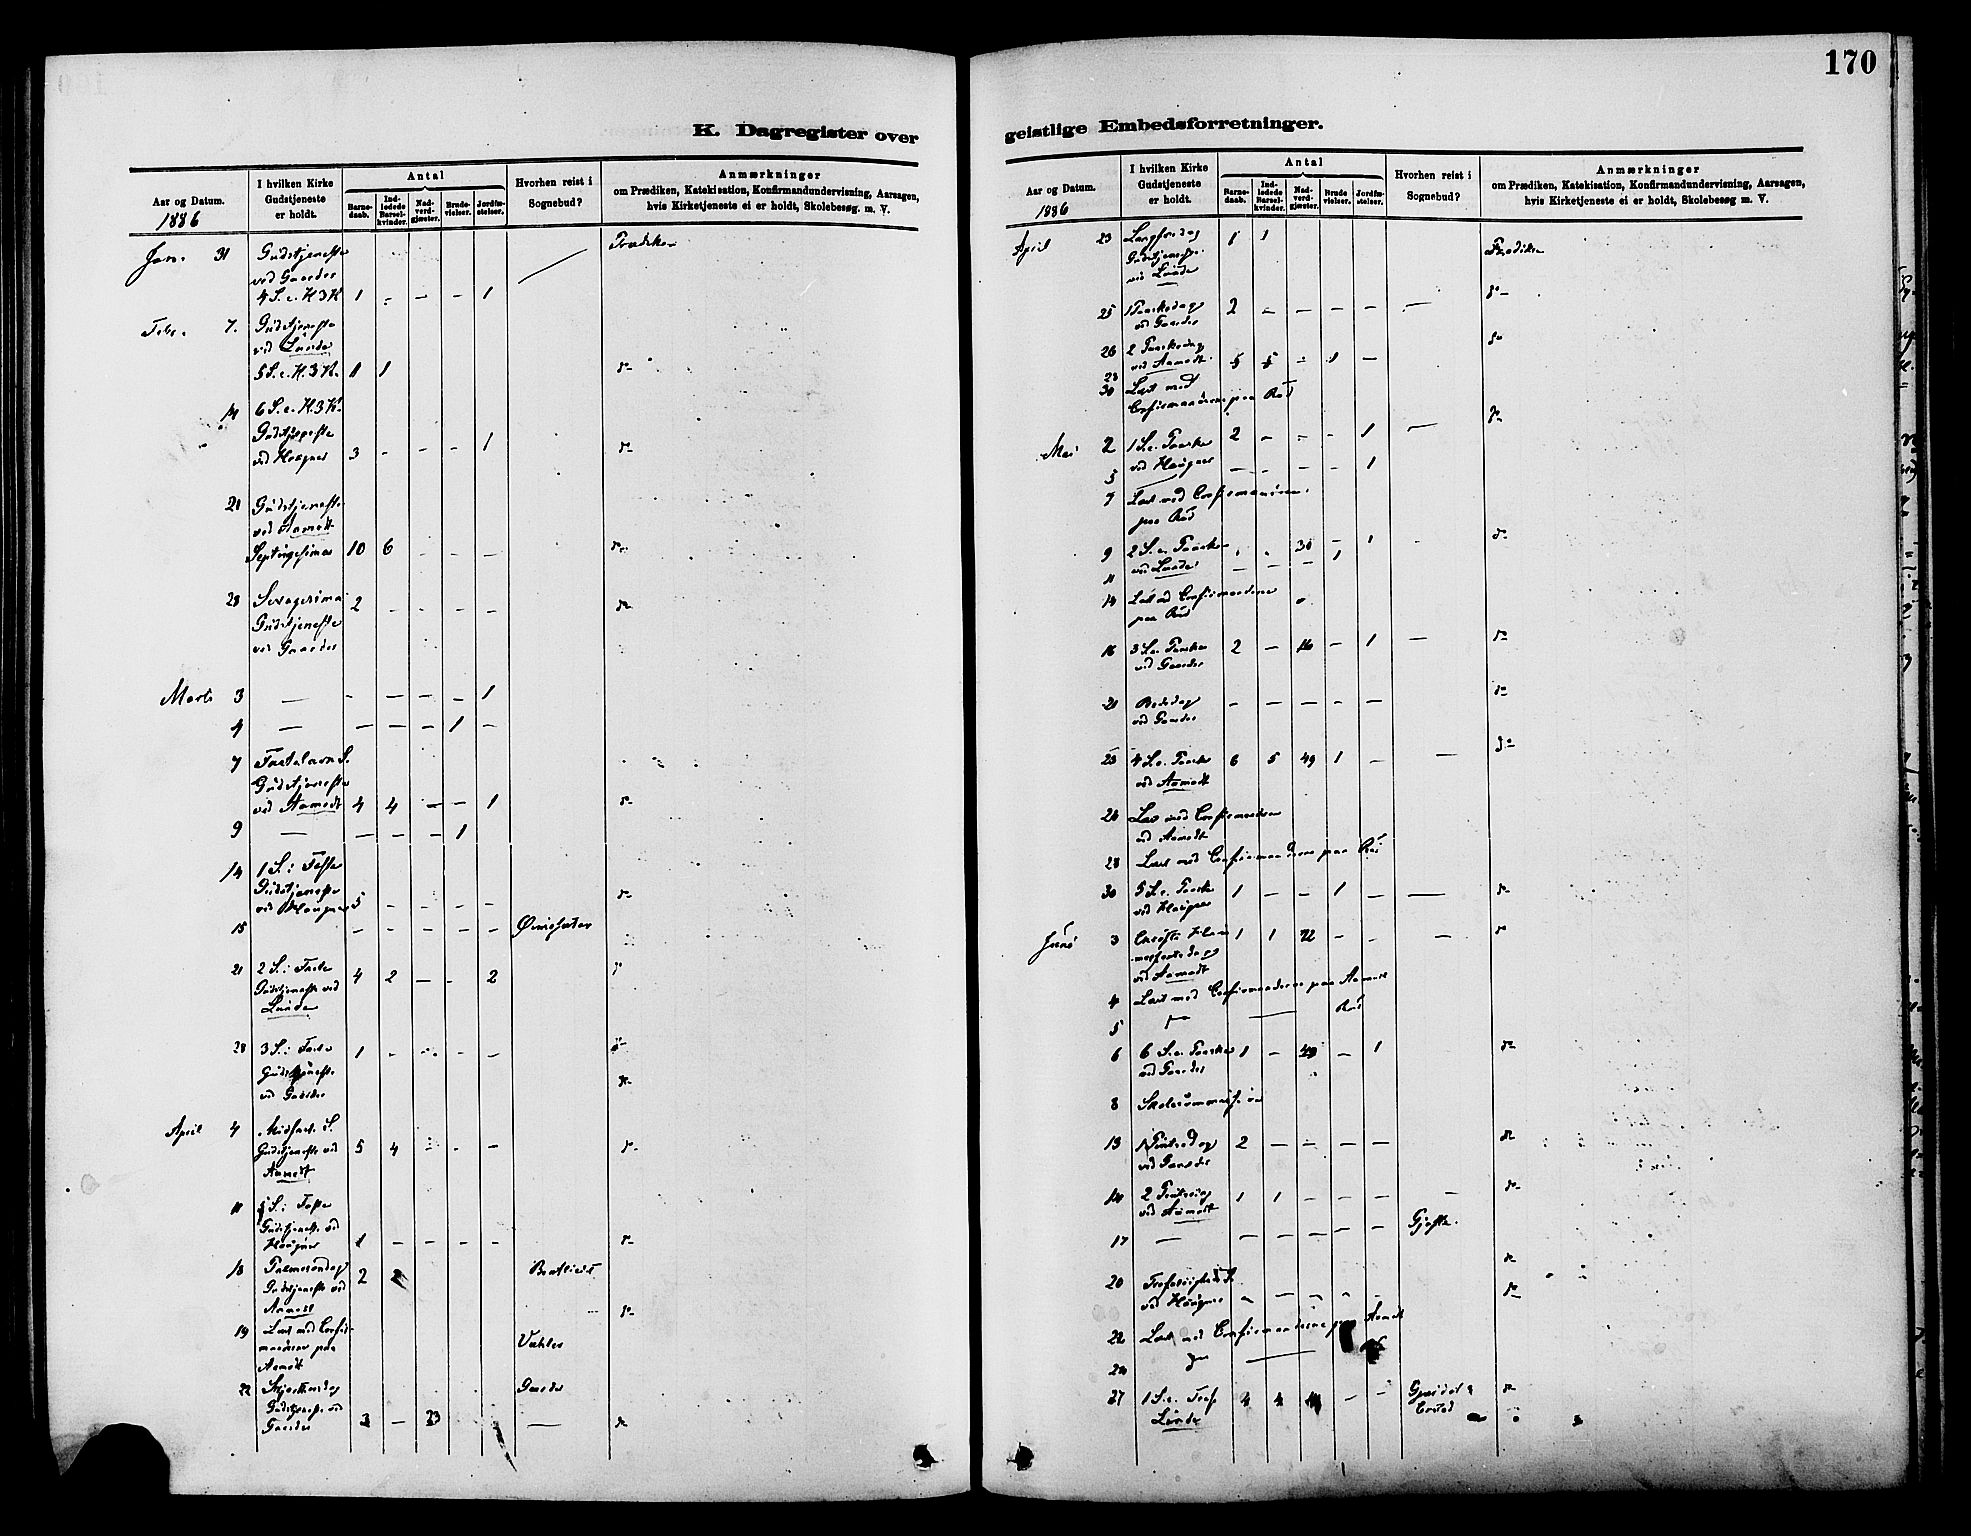 170
K. Dagregister over
geistlige Embedsforretninger.
Aar og Datum.
1886
I hvilken Kirke
Gudstjeneste
er holdt.
Antal
Barne-
daab.
Ind-
ledede
Barsel-
kvinder.
Nad-
verd-
gjæster.
Brude-
vielser.
Jordfæ-
stelser.
Hvorhen reist i
Sognebud?
Anmærkninger
om Prædiken, Katekisation, Konfirmandundervisning, Aarsagen,
hvis Kirketjeneste ei er holdt, Skolebesøg m. V.
Jan. 31 Gudstjeneste Prædiken
ved Gaarder
4 S. e. H 3 K 1 - - - 1
Febr. 7. Gudstjeneste
ved Lunde
5 S. e. H. 3 K. 1 1 do
14 6 S. e. H. 3 K.
Gudstjeneste
ved Haugner 3 - - - 1 do
21 Gudstjeneste
ved Aamodt
Septuagesima 10 6 - - - do
28 Sexagesima 2 - - - - do
Gudstjeneste
ved Gaarder
Marts 3 — - — — - 1
4 — — — — 1 -
7 Fastelavns S.
Gudstjeneste
ved Aamodt 4 4 — — 1 do
9 — — — — 1
14 1 S. i Faste
Gudstjeneste do
ved Haugner 5 - - - -
15 — — — — —
21 2 S. i Faste 4 2 — - 2 do
Gudstjeneste ved
Lunde
28 3 S. i Faste 1 - - - - do
Gudstjeneste
ved Gaarder do
April 4 Midfaste S.
Gudstjeneste ved 5 4 - - - do
Aamodt
11 S. i Faste
Gudstjeneste ved
Haugner 1 — — — — do
18 Palmesøndag 2 2
Gudstjeneste ved
Aamodt do
19 Læst med Confir-
manderne paa
Aamodt
22 Skjærthorsdag Gaarder
Gudstjeneste ved
Gaarder 3 — 23 — do
Aar og Datum.
1886
I hvilken Kirke
Gudstjeneste
er holdt.
Antal
Barne-
daab.
Ind-
ledede
Barsel-
kvinder.
Nad-
verd-
gjæster.
Brude
vielser.
Jordfæ-
stelser.
Hvorhen reist i
Sognebud?
Anmærkninger
om Prædiken, Katekisation, Konfirmandundervisning, Aarsagen,
hvis Kirketjeneste ei er holdt, Skolebesøg m. V.
April 23 Langfredag 1 1 Prædiken
Gudstjeneste
ved Lunde
do
25 1 Paaskedag 2 — — — — —
ved Gaarder
26 2 Paaskedag do
ved Aamodt 5 5 - 1 —
28
30 Læst med
Confirmanderne paa Rud
Mai 2 1 S. e. Paaske 2 - - - 1 — do
ved Haugner
5 — — - - - 1
7 Læst med Confirmanderne
paa Rud
9 2 S. e. Paaske 30 - 1 do
ved Lunde
11 — — —
14 Læst med Confirmanderne
paa Rud
16 3 S. e. Paaske 2 — 16 — 1 — do
ved Gaarder
21 Bededag — — — — — do
ved Gaarder
23 4 S. e. Paaske 6 5 49 1 — — do
ved Aamodt
24 Læst med Confirmanderne
ved Aamodt
28 Læst med Confirmanderne paa Rud
30 5 S. e. Paaske 1 — — 1 — — do
ved Haugner
Juni 3 Christi Him- 1 1 22 — - — do
melfartsdag
ved Aamodt
4 Læst med Confirmanderne paa Aamodt
5 — Rud
6 6 S. e. Paaske 1 — 49 — 1 do
ved Gaarder
8 Skolecommission
13 1 Pintsedag 2 — — — — do
ved Gaarder
14 2 Pintsedag 1 1 — — — — do
ved Aamodt
17 — — — — — —
do
20 Trefoldigheds S.
ved Haugner — — — - - do
22 Læst med Confirmanderne paa Aamodt
24 —
27 1 S. e. Tref. 4 4 — - do
Lunde